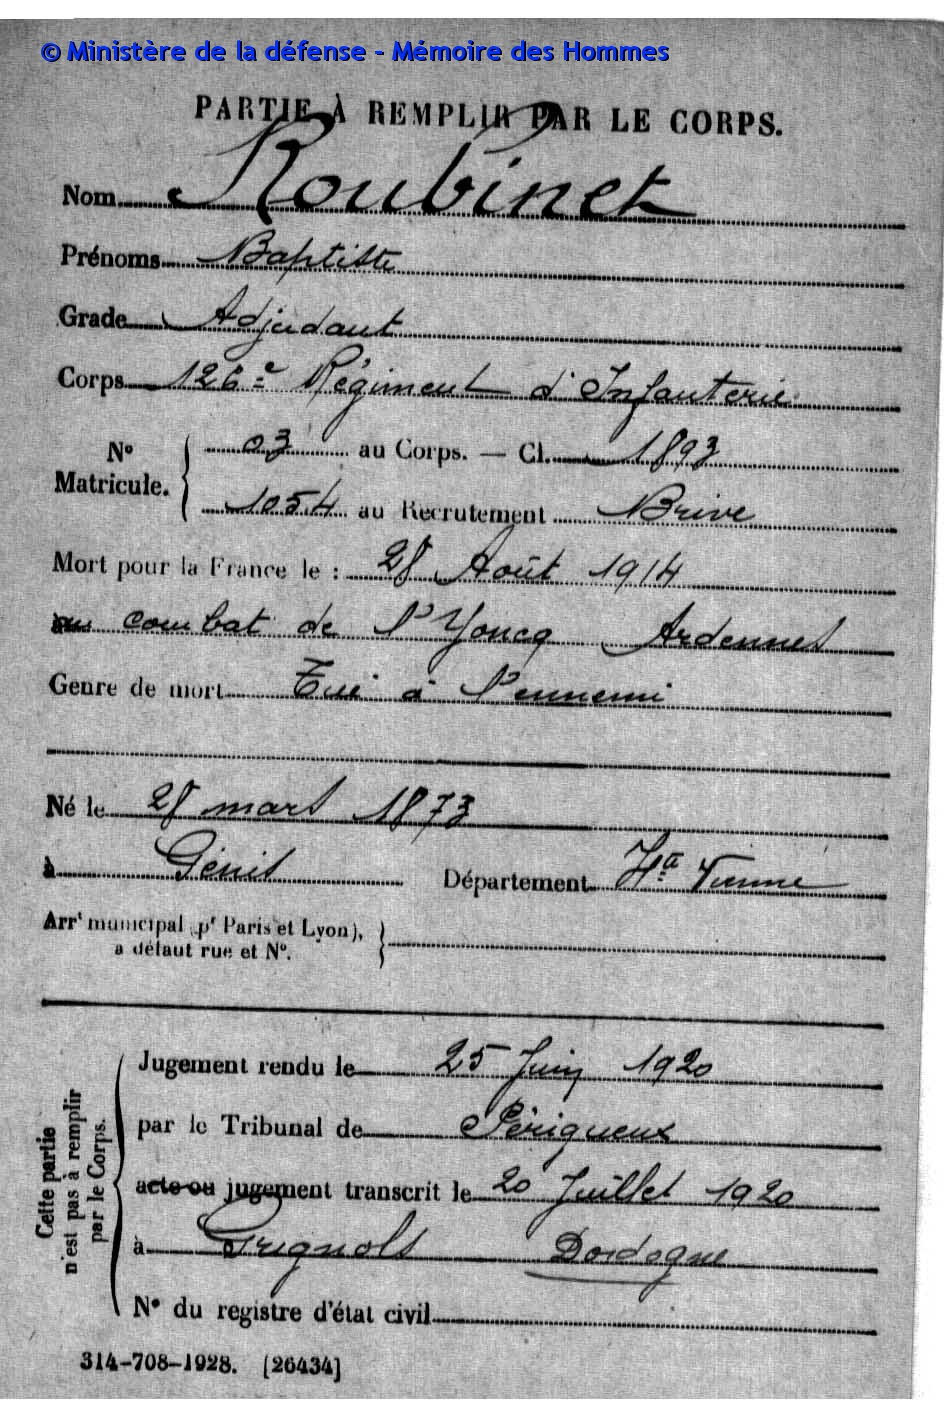 © Ministère de la défense - Mémoire des Hommes
PARTIE À REMPLIR PAR LE CORPS.
Nom Roubinet
Prénoms Baptiste
Grade Adjudant
Corps 126e Régiment d'Infanterie
No Matricule. 03 au Corps. — Cl. 1893
1054 au Recrutement Brive
Mort pour la France le : 28 Août 1914
au combat de l'Yoncq Ardennes
Genre de mort Tué à l'ennemi
Né le 28 mars 1873
à Génis Département Hte Vienne
Arrt municipal (pr Paris et Lyon),
a défaut rue et No.
Cette partie
n'est pas à remplir
par le Corps.
Jugement rendu le 25 Juin 1920
par le Tribunal de Périgueux
acte ou jugement transcrit le 20 Juillet 1920
à Grignols Dordogne
No du registre d'état civil
314-708-1928. [26434]